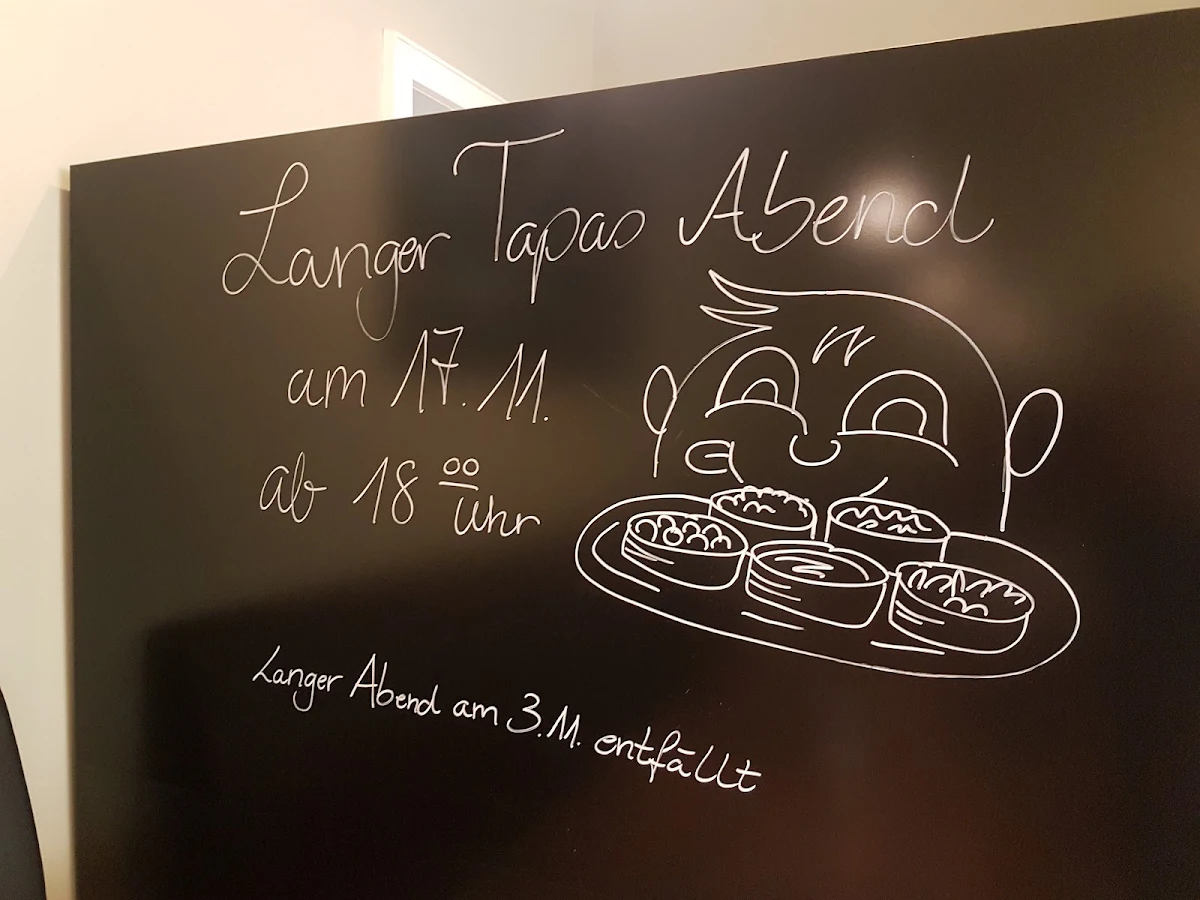 Langer Tapas Abend
am 17.11.
ab 18 00 Uhr
Langer Abend am 3.11. entfällt